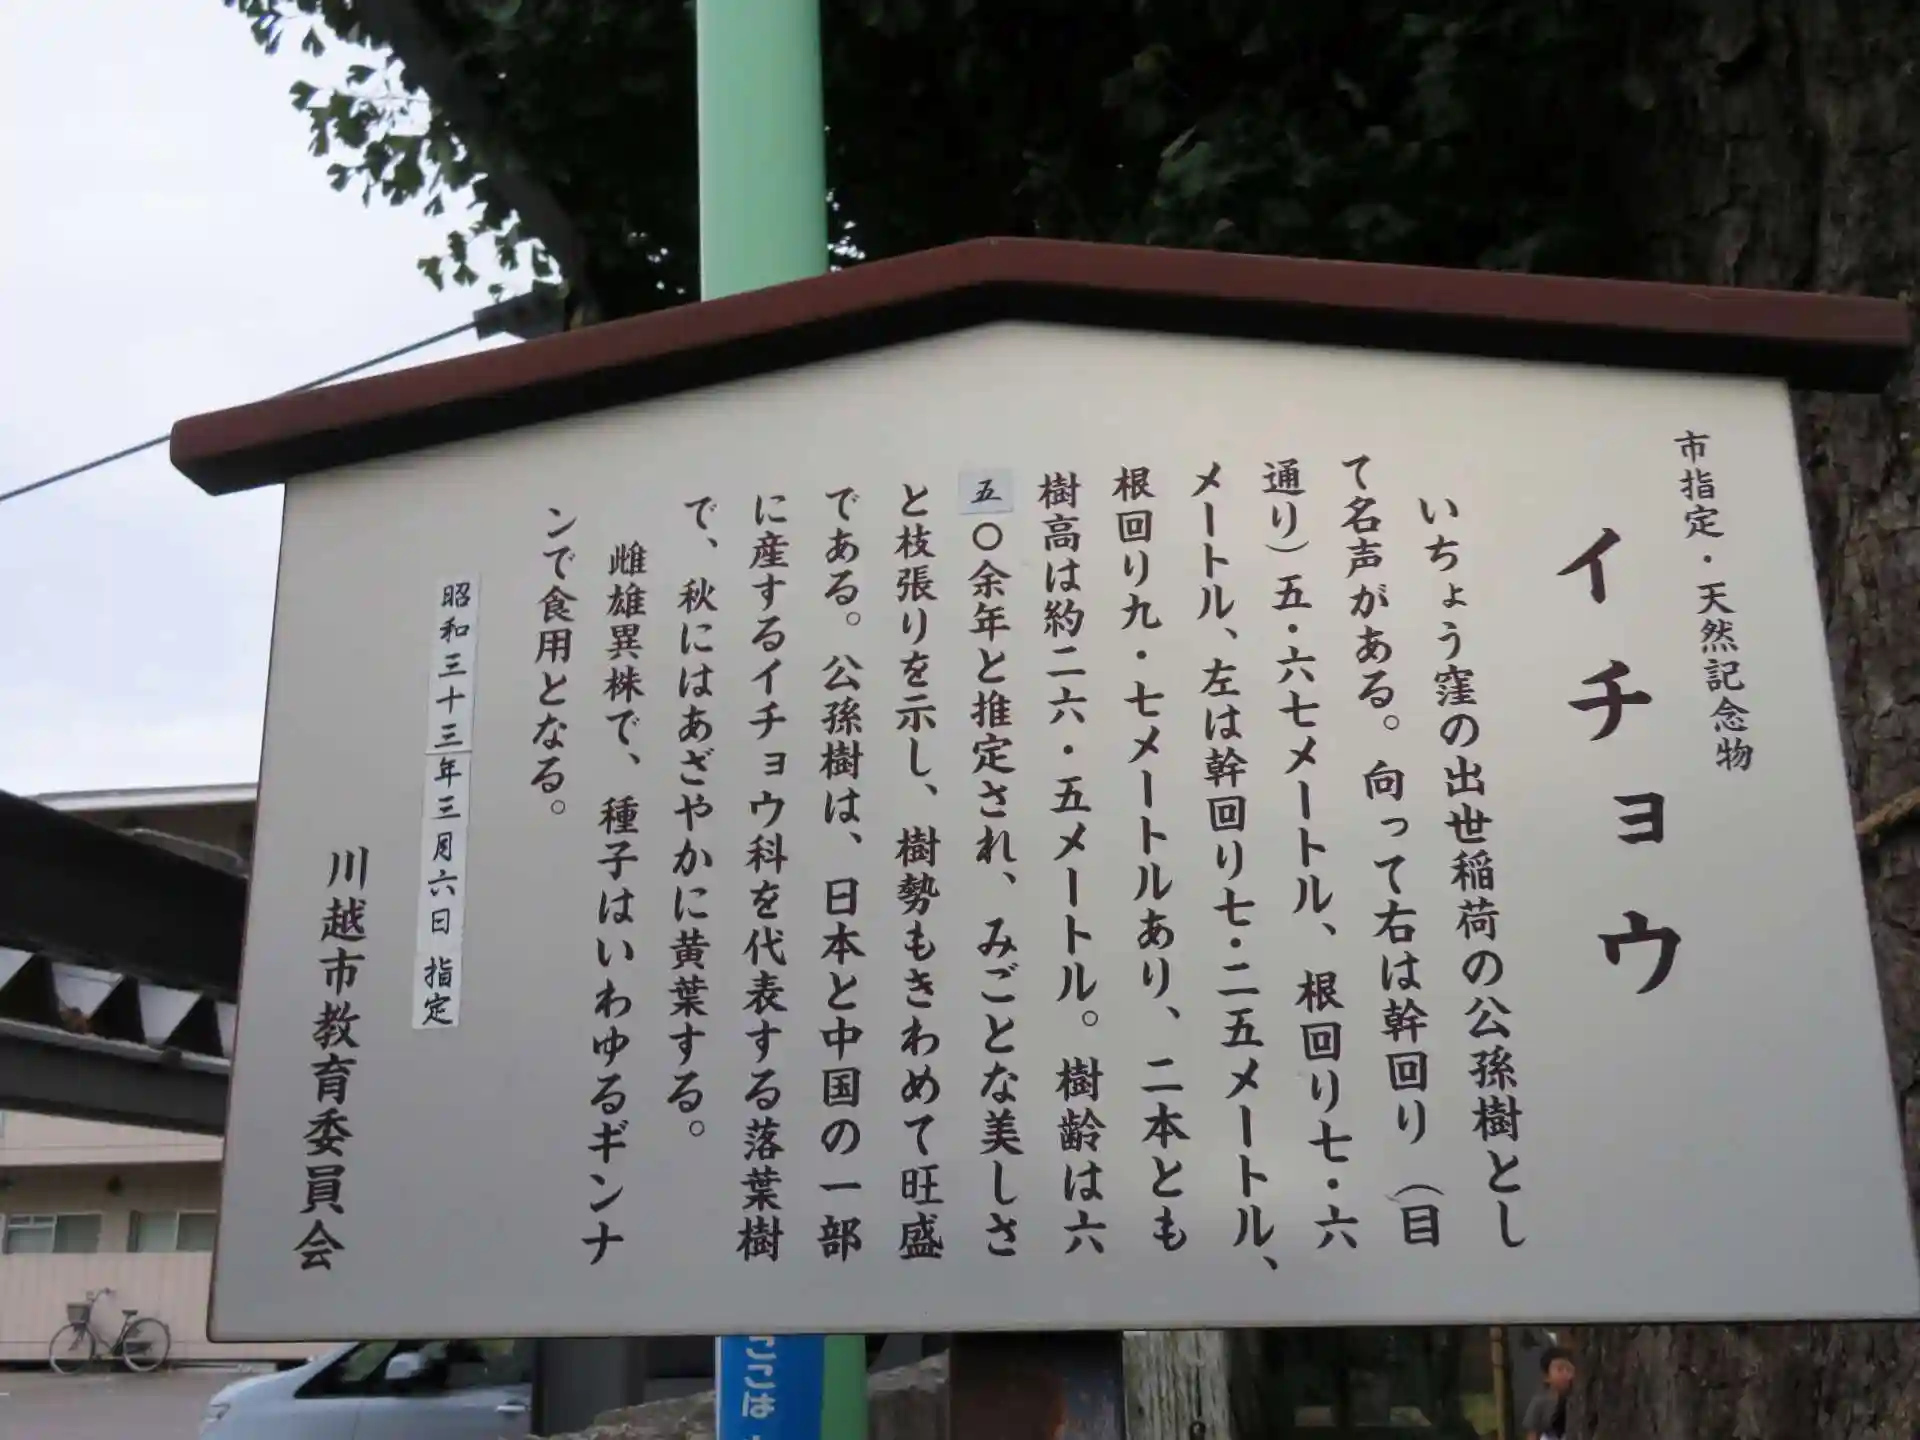 市指定・天然記念物
イチョウ
いちょう窪の出世稲荷の公孫樹とし
て名声がある。向って右は幹回り（目
通り）五・六七メートル、根回り七・六
メートル、左は幹回り七・二五メートル、
根回り九・七メートルあり、二本とも
樹高は約二六・五メートル。樹齢は六
五〇余年と推定され、みごとな美しさ
と枝張りを示し、樹勢もきわめて旺盛
である。公孫樹は、日本と中国の一部
に産するイチョウ科を代表する落葉樹
で、秋にはあざやかに黄葉する。
雌雄異株で、種子はいわゆるギンナ
ンで食用となる。
昭和三十三年三月六日指定
川越市教育委員会
ここは